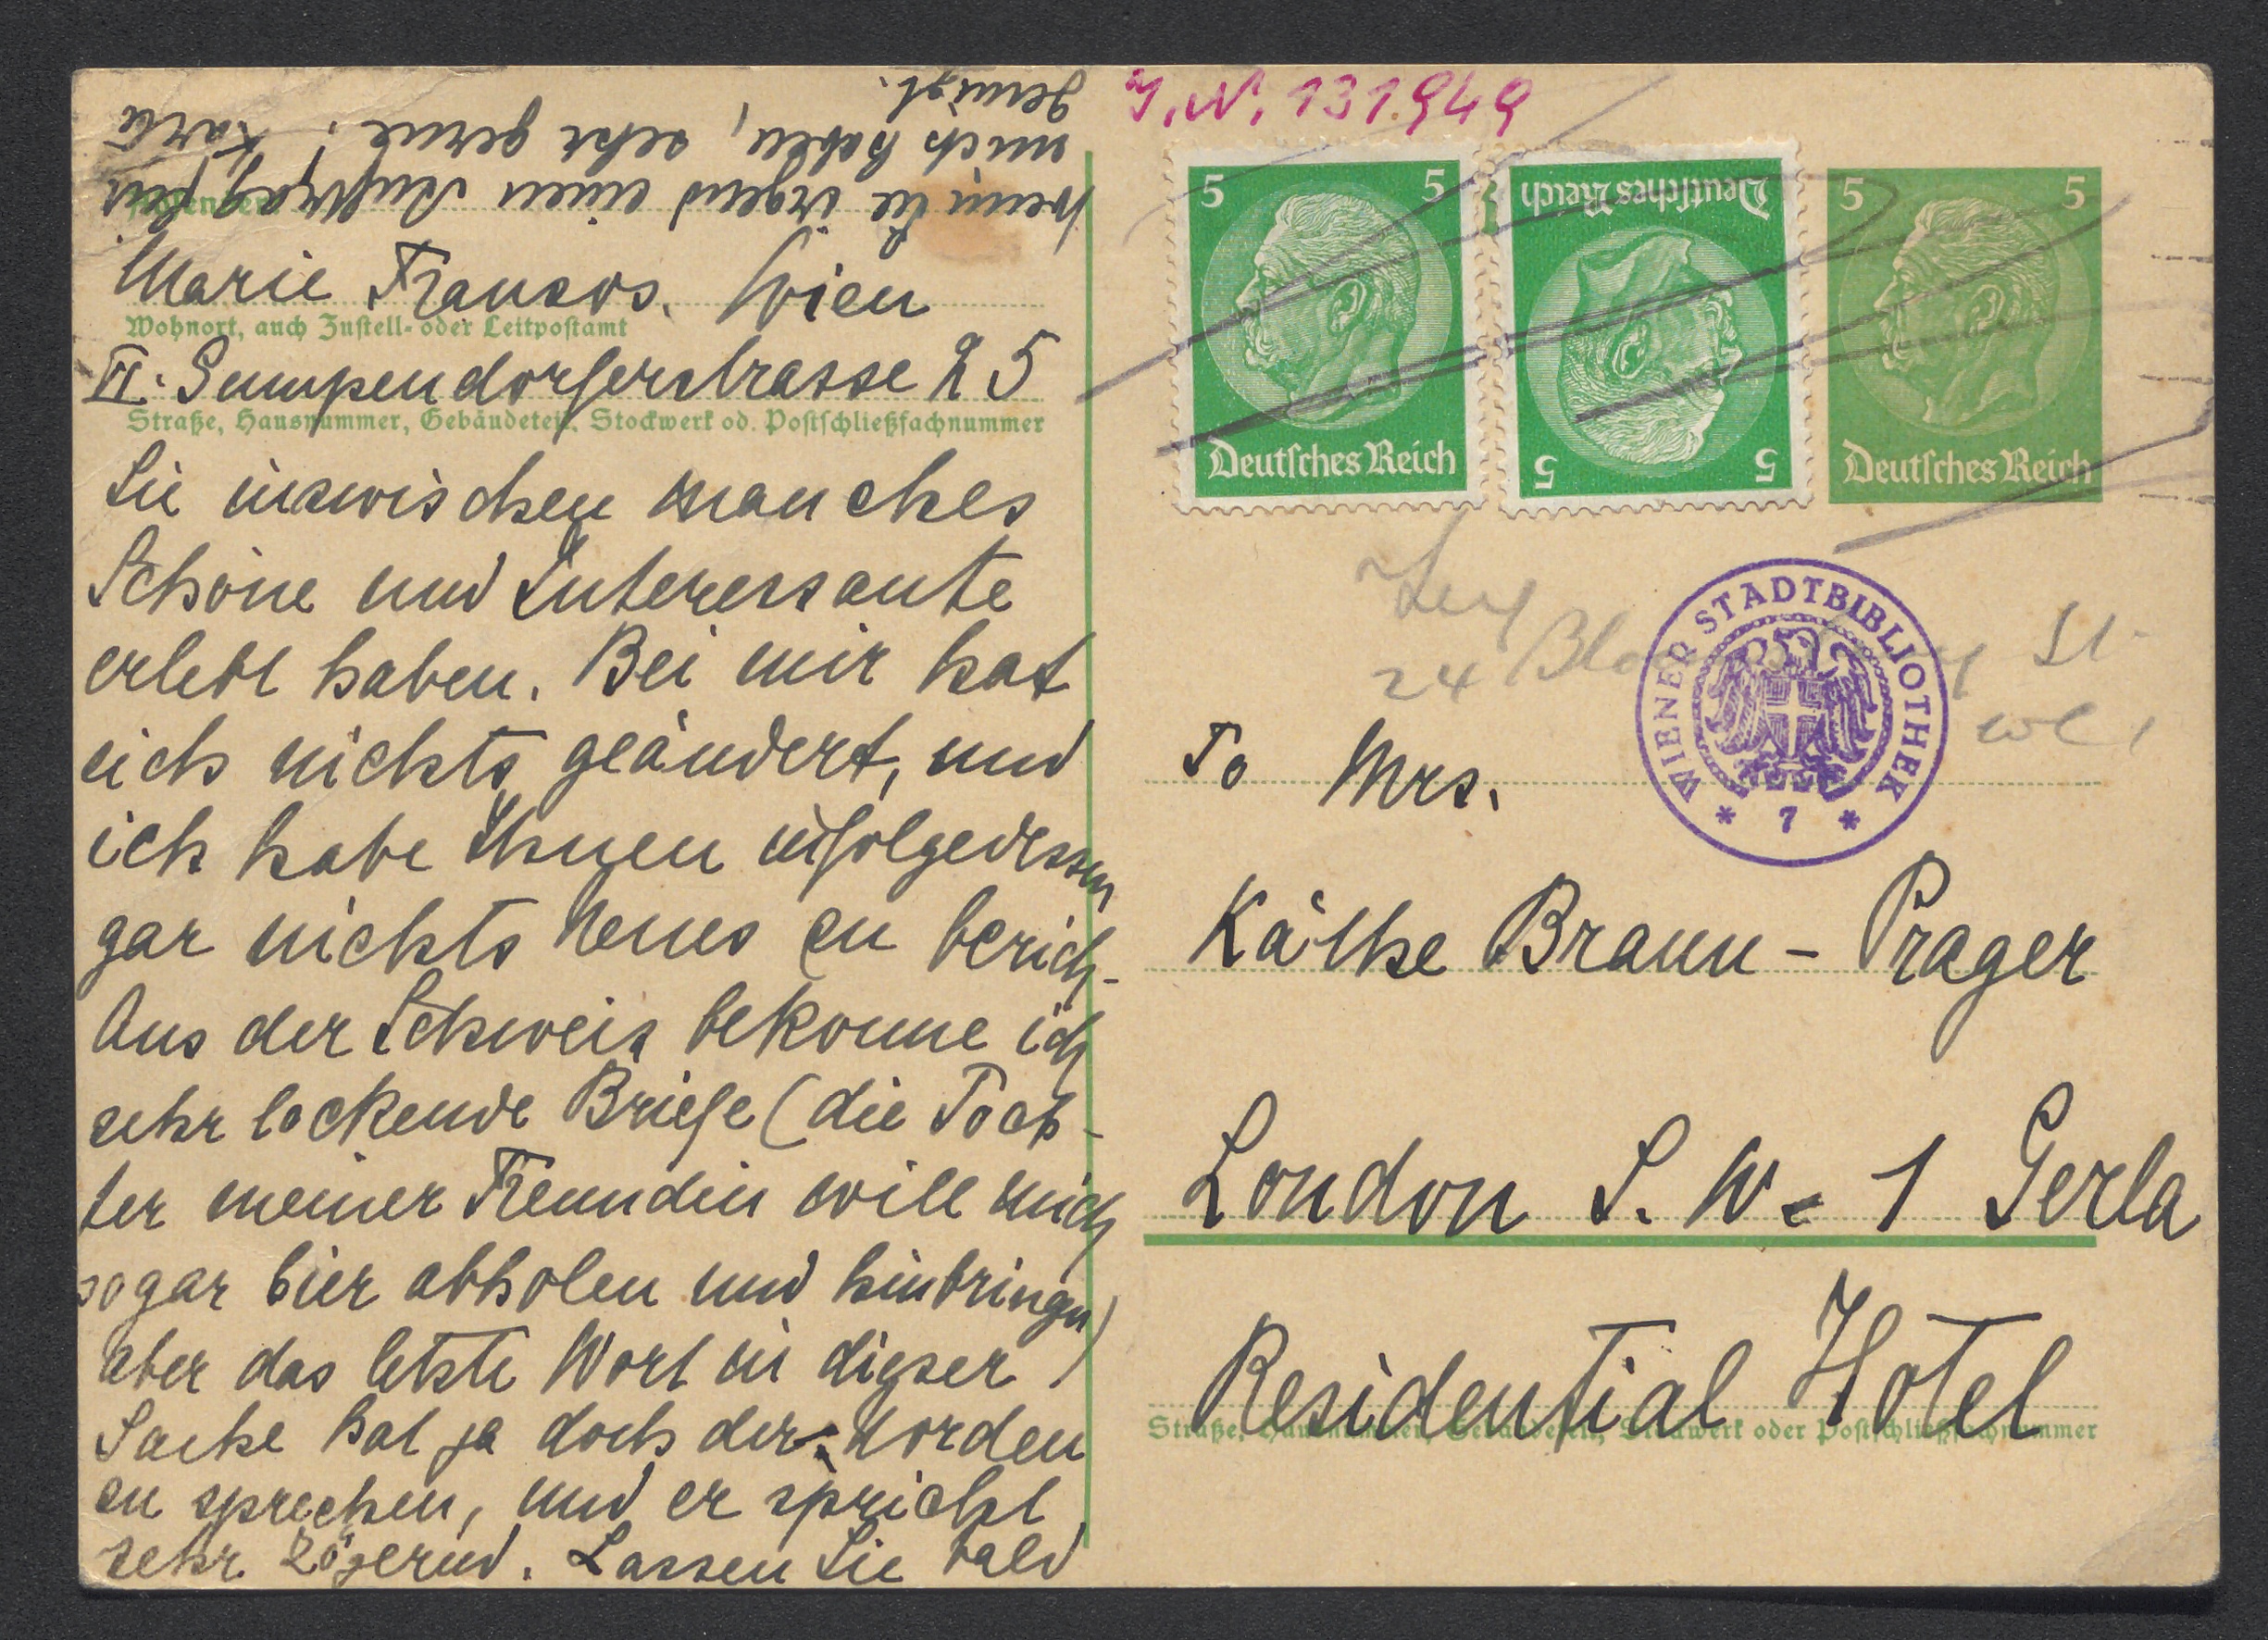 wenn Sie irgend einen Auftrag für
mich haben, sehr gerne! Karte
genügt.
Marie Franzos. Wien
Wohnort, auch Zustell- oder Leitpostamt
VI. Gumpendorferstrasse 25
Straße, Hausnummer, Gebäudeteil, Stockwerk od. Postschließfachnummer
Sie inzwischen manches
Schöne und Interessante
erlebt haben. Bei mir hat
sich nichts geändert, und
ich habe Ihnen infolgedessen
gar nichts Neues zu berich-
Aus der Schweiz bekomme ich
sehr lockende Briefe (die Toch-
ter meiner Freundin will mich
sogar hier abholen und hinbringen)
aber das letzte Wort in dieser
Sache hat ja doch der Norden
zu sprechen, und er spricht
sehr zögernd. Lassen Sie bald
J.N. 131.949
5 5
Deutsches Reich
5 5
Deutsches Reich
5 5
Deutsches Reich
24 St.
WC1
WIENER STADTBIBLIOTHEK
* 7 *
To Mrs.
Käthe Braun-Prager
London S.W. 1 Perla
Residential Hotel
Straße, Hausnummer, Gebäudeteil, Stockwerk oder Postschließfachnummer